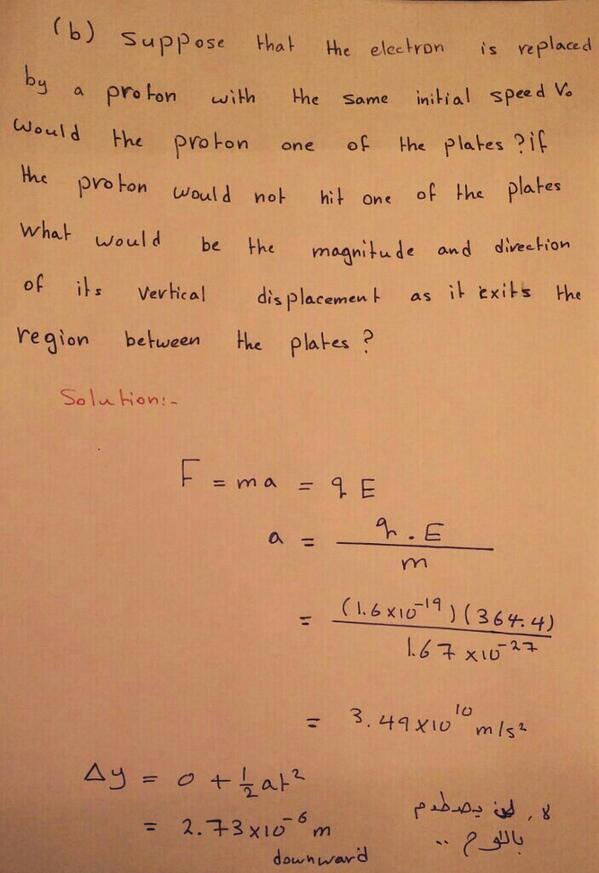 (b) Suppose that the electron is replaced
by a proton with the same initial speed V₀
would the proton one of the plates ? if
the proton would not hit one of the plates
what would be the magnitude and direction
of its vertical displacement as it exits the
region between the plates ?
Solution:-
F = ma = q E
a = q . E / m
= (1.6 x10⁻¹⁹) (364.4) / 1.67 x10⁻²⁷
= 3.49 x10¹⁰ m/s²
Δy = 0 + ½ at²
= 2.73 x10⁻⁶ m
downward
لا , لن يصطدم
باللوح ..